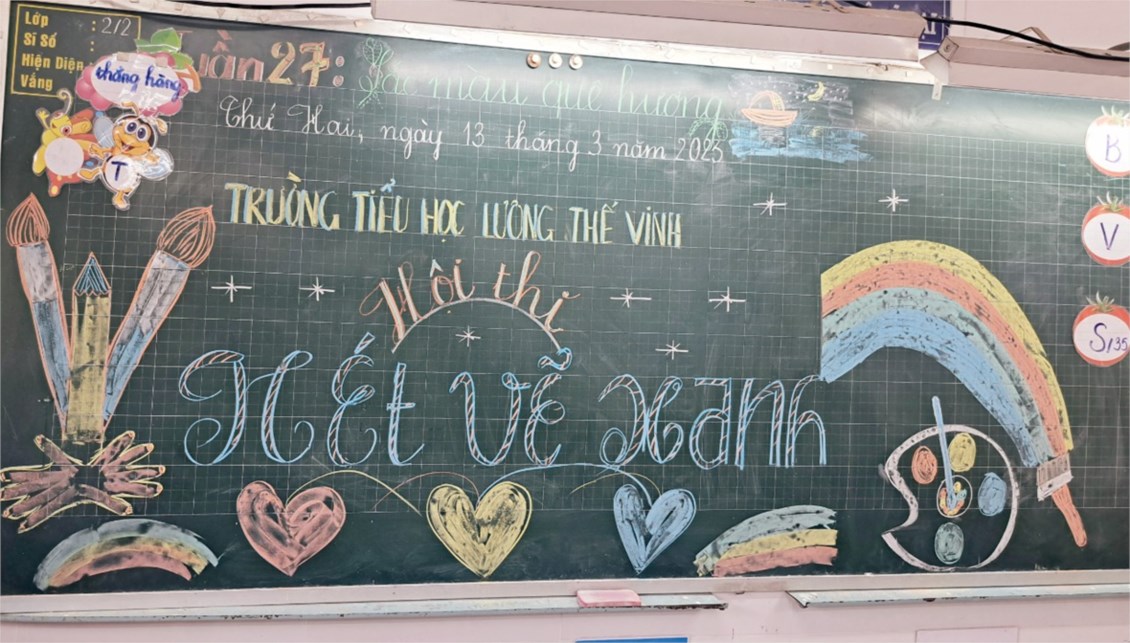 Lớp : 2/2
Sĩ Số :
Hiện Diện :
Vắng :
thẳng hàng
T
Tuần 27: Sắc màu quê hương
Thứ Hai, ngày 13 tháng 3 năm 2023
TRƯỜNG TIỂU HỌC LƯƠNG THẾ VINH
Hội thi
NÉt VẼ Xanh
B
V
S/35